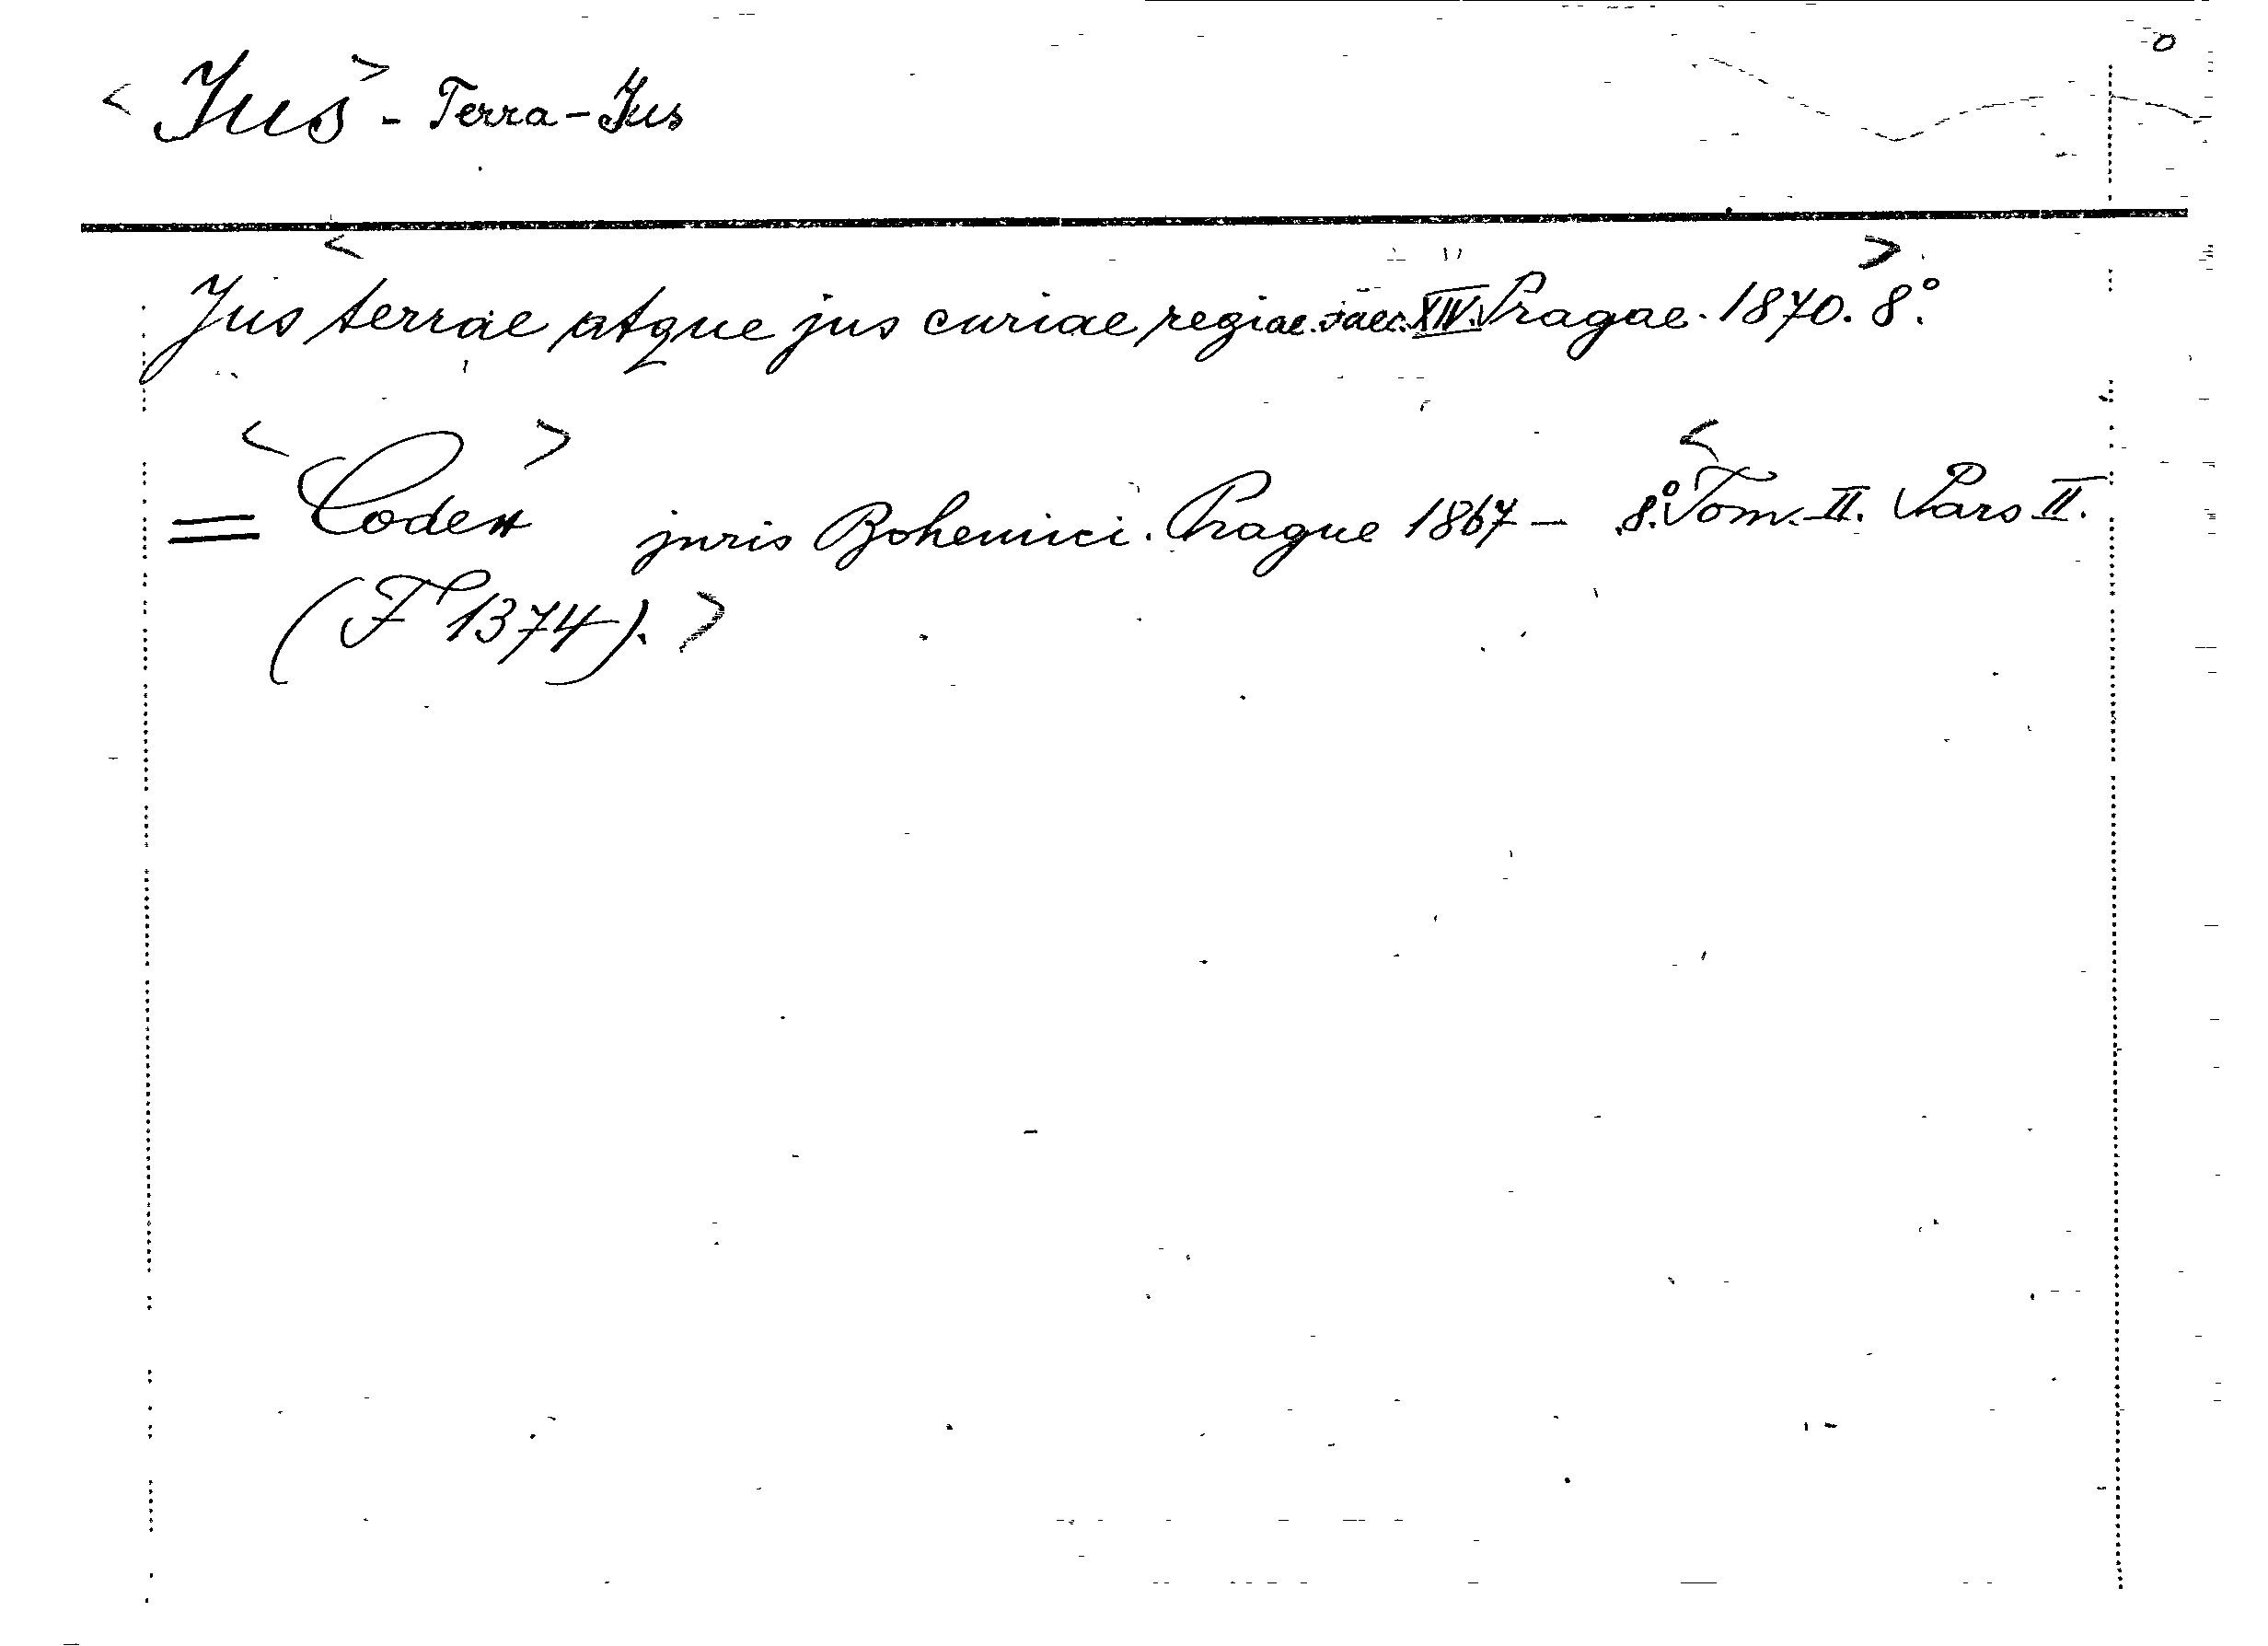 < Jus > - Terra - Jus
Jus < terrae atque jus curiae regiae saec. XIV. Pragae. 1870. > 8°.
= < Codex > juris Bohemici. Prague 1867 - 8°. < Tom. II. Pars II.
(F 1374). >